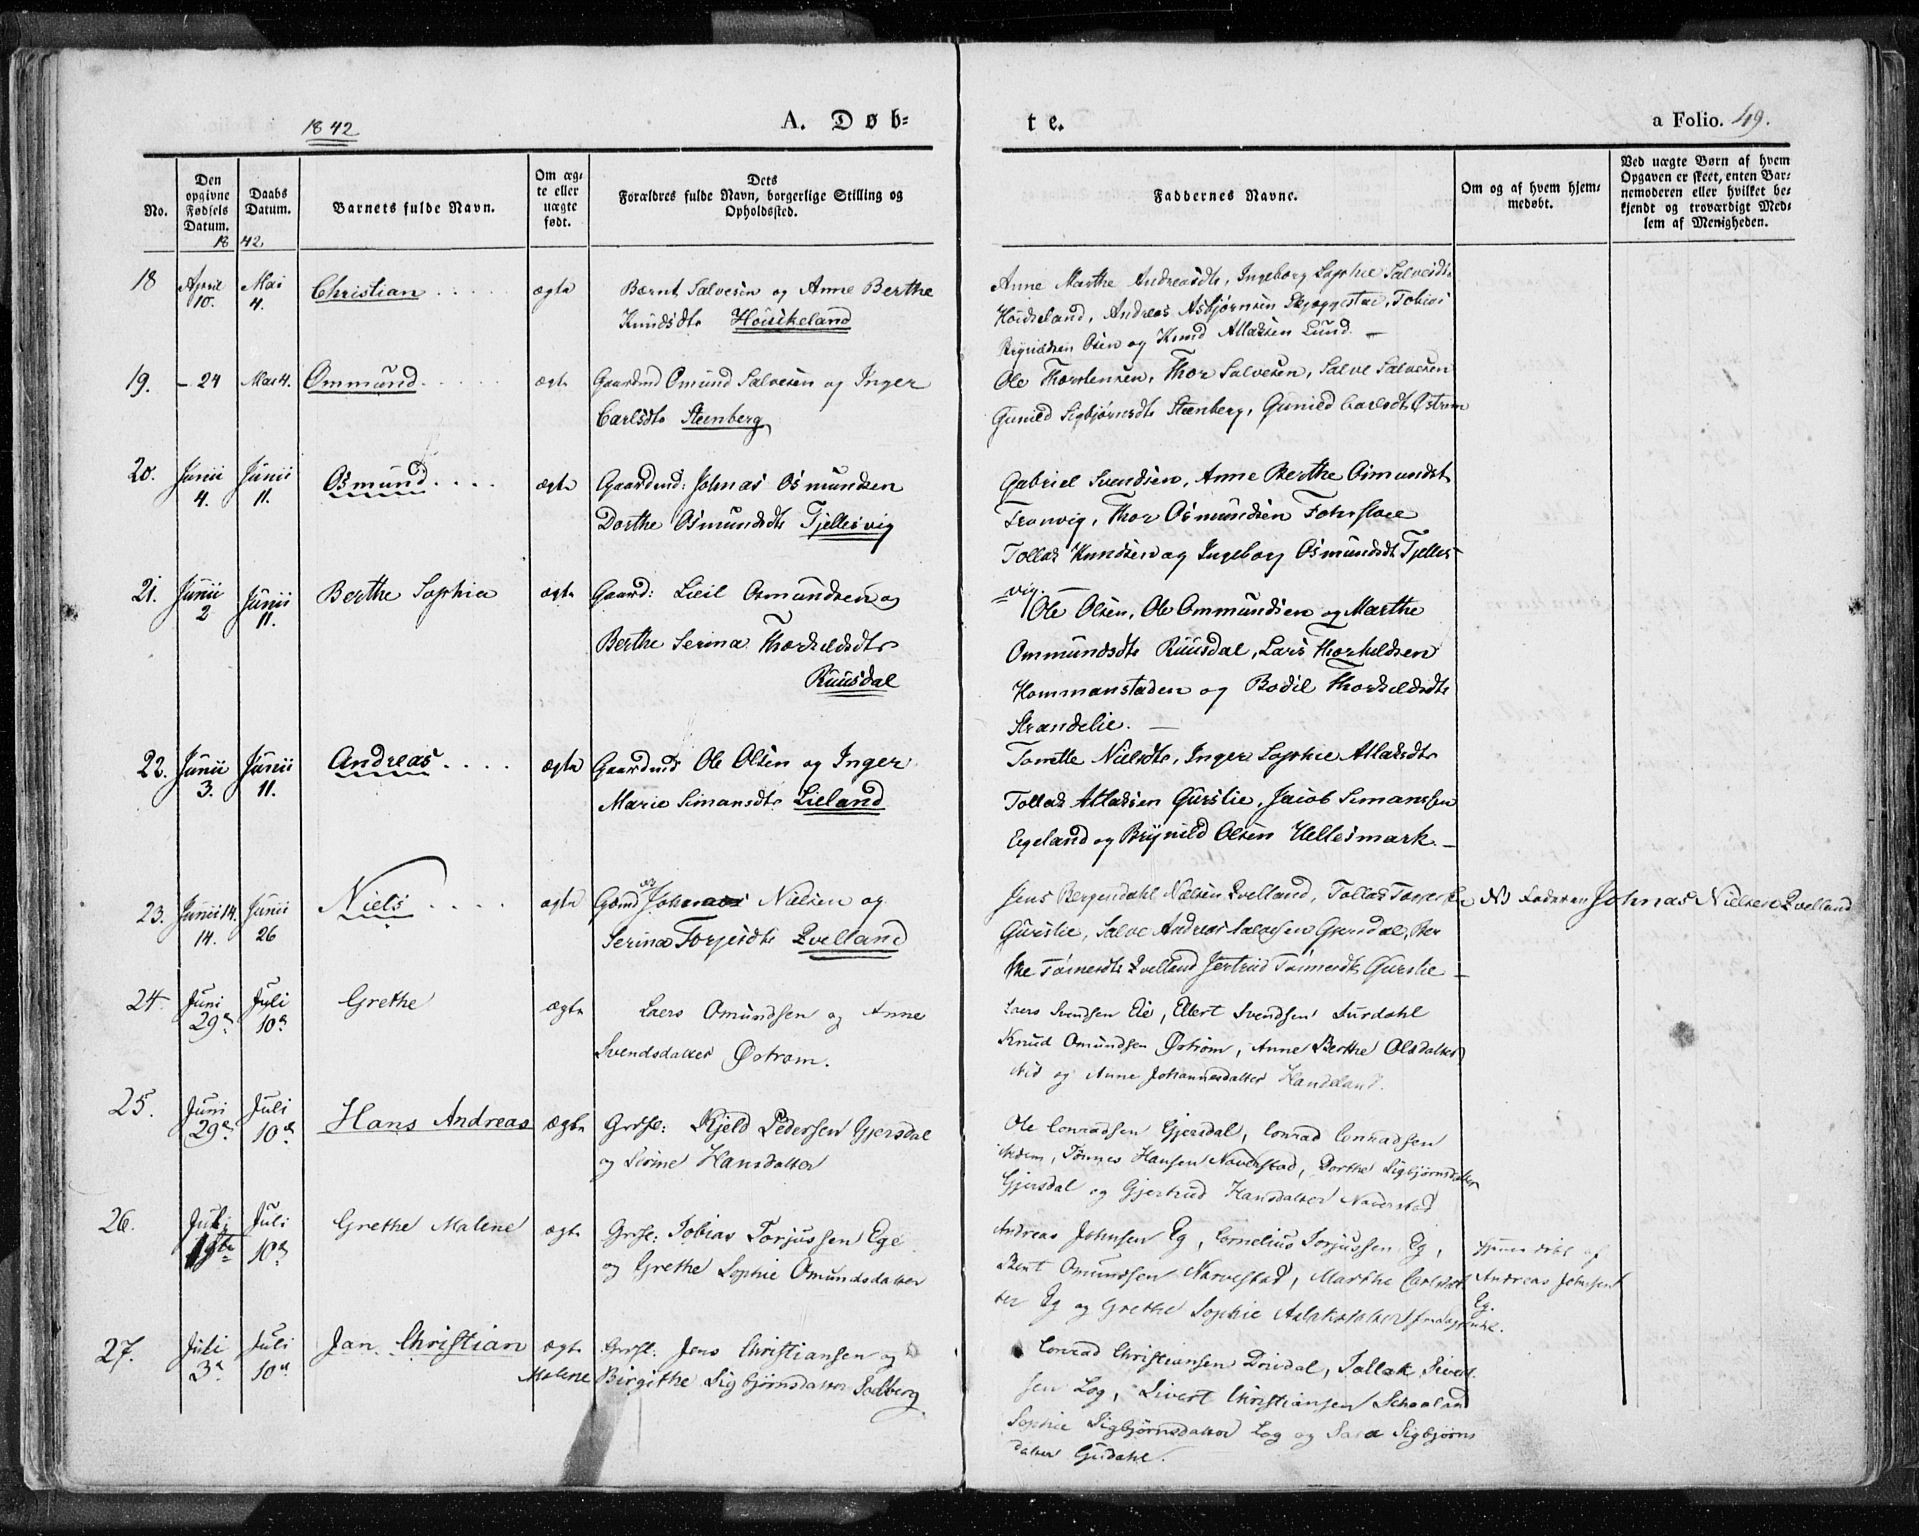 1842
A. Døb-
te.
a Folio. 49.
No.
Den opgivne Fødsels Datum.
Daabs Datum.
Barnets fulde Navn.
Om ægte eller uægte født.
Dets Forældres fulde Navn, borgerlige Stilling og Opholdssted.
Faddernes Navne.
Om og af hvem hjemmedøbt.
Ved uægte Børn af hvem Opgaven er skeet, enten Barnemoderen eller hvilket bekjendt og troværdigt Medlem af Menigheden.
18 42.
18 April 10. Mai 4. Christian ægte Bærnt Salvesen og Anne Berthe
Knudsdtr Höisikeland
Anne Marthe Andreasdtr, Ingeborg Sophie Salvesdtr
Andreas Asbjørnsen Skjeggestad, Tobias
Osen og Knud Atlaksen Lund. —
19. – 24 Mai 4. Ommund ægte Gaardmd Omund Salvesen og Inger
Carlsdtr Steenberg
Ole Thorstensen, Thor Salvesen, Salve Salvesen
Gunild Sigbjørnsdtr Steenberg, Gunild Carlsdtr Østrem
20. Junii 4. Junii 11. Osmund ægte Gaardmd: Johnas Osmundsen
Dorthe Osmundsdtr Tjellesvig
Gabriel Svendsen, Anne Berthe Osmundsdt
Tranvig, Thor Osmundsen
Tollak Knudsen og Ingeborg Osmundsdt Tjelles-
vig. —
21. Junii 2 Junii 11. Berthe Sophia ægte Gaard: Osmundsen og
Berthe Serina Thorkeldsdtr
Ruusdal
Ole Olsen, Ole Ommundsen og Marthe
Ommundsdtr Ruusdal, Lars Thorkeldsen
Hommanstaden og Bodil Thorkeldsdtr
Strandelie. —
22. Junii 3. Junii 11. Andreas ægte Gaardmd Ole Olsen og Inger
Marie Simansdtr Lieland
Tonette Nielsdtr, Inger Sophie Atlaksdtr
Tollak Atlaksen Gurslie, Jacob Simanssen
Egeland og Brynild Olsen Hellesmark. —
23. Junii 14. 14. Junii 26 Niels ægte Gdmd Johnas Nielsen og
Serina Torjesdtr Qvelland
Jens Bergendahl Nielsen Qvelland, Tollak
Gurslie, Salve Andreas Salvesen Gjersdal, Ber-
the Tønnesdtr Qvelland Jertrud Tønnesdtr Gurslie —
Faderen Johnas Nielsen Qvelland
24. Juni 29de Juli 10de Grethe ægte Laers Omundsen og Anne
Svendsdatter Østrom.
Laers Svendsen Eie, Ellert Svendsen Surdahl
Knud Omundsen Østrom, Anne Berthe Olsdatter
og Anne Johannesdatter Handeland.
25. Juni 29de Juli 10de Hans Andreas ægte Grdsl: Kjeld Pedersen Gjersdal
og Sirine Hansdatter
Ole Conradsen Gjersdal, Conrad Conradsen
Tønnes Hansen Naverstad, Dorthe Sigbjørnsdatter
Gjersdal og Gjertrud Hansdatter Naverstad
26. Juli Juli 10de Grethe Malene ægte Grdsl: Tobias Torjussen Ege
og Grethe Sophie Omundsdatter
Andreas Johnsen Eg, Cornelius Torjussen Eg,
Bent Omundsen Navrestad, Marthe Carlsdat-
ter Eg og Grethe Sophie Aslaksdatter
hjemmedøbt af
Andreas Johnsen
Eg.
27. Juli 3de Juli 10de Jan Christian ægte Grdsl: Jens Christiansen og
Malene Birgithe Sigbjørnsdatter Solberg
Conrad Christiansen Drivdal, Tollak Sivert-
sen Log, Sivert Christiansen
Sophie Sigbjørnsdatter Log og Sara Sigbjørns-
datter Gudahl.